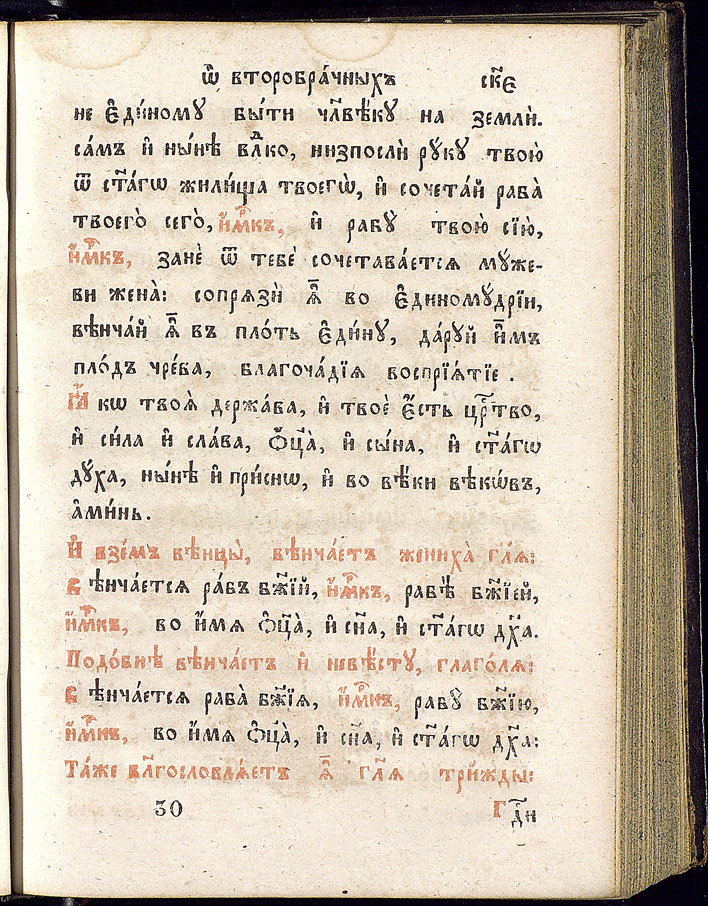 Ѡ҆ второбра́чныхъ ск҃є
не є҆ди́номꙋ бы́ти чл҃вѣ́кꙋ на землѝ.
са́мъ и҆ ны́нѣ вл҃ко, низпослѝ рꙋ́кꙋ твою̀
ѿ ст҃а́гѡ жили́ща твоегѡ̀, и҆ сочета́й раба̀
твоего̀ сего̀, и҆́м҃къ, и҆ рабꙋ̀ твою̀ сїю̀,
и҆́м҃къ, занѐ ѿ тебѐ сочетава́ется мꙋже-
ви жена̀: сопрѧзѝ ѧ҆̀ во є҆диномꙋ́дрїи,
вѣнча́й ѧ҆̀ въ пло́ть є҆ди́нꙋ, да́рꙋй и҆̀мъ
пло́дъ чре́ва, благоча́дїѧ воспрїѧ́тїе.
Ꙗ҆́кѡ твоѧ̀ держа́ва, и҆ твоѐ є҆́сть цр҇тво,
и҆ си́ла и҆ сла́ва, ѻ҆ц҃а̀, и҆ сы́на, и҆ ст҃а́гѡ
дꙋ́ха, ны́нѣ и҆ при́снѡ, и҆ во вѣ́ки вѣкѡ́въ,
а҆ми́нь.
И҆ взе́мъ вѣнцы̀, вѣнча́етъ жениха̀ гл҃ѧ:
Вѣнча́ется ра́бъ бж҃їй, и҆́м҃къ, рабѣ̀ бж҃їей,
и҆́м҃къ, во и҆́мѧ ѻ҆ц҃а̀, и҆ сн҃а, и҆ ст҃а́гѡ дх҃а.
Подо́бнѣ вѣнча́етъ и҆ невѣ́стꙋ, глаго́лѧ:
Вѣнча́ется раба̀ бж҃їѧ, и҆́м҃къ, рабꙋ̀ бж҃їю,
и҆́м҃къ, во и҆́мѧ ѻ҆ц҃а̀, и҆ сн҃а, и҆ ст҃а́гѡ дх҃а:
Та́же бл҃гословлѧ́етъ ѧ҆̀ гл҃ѧ три́жды:
30 Гд҇и